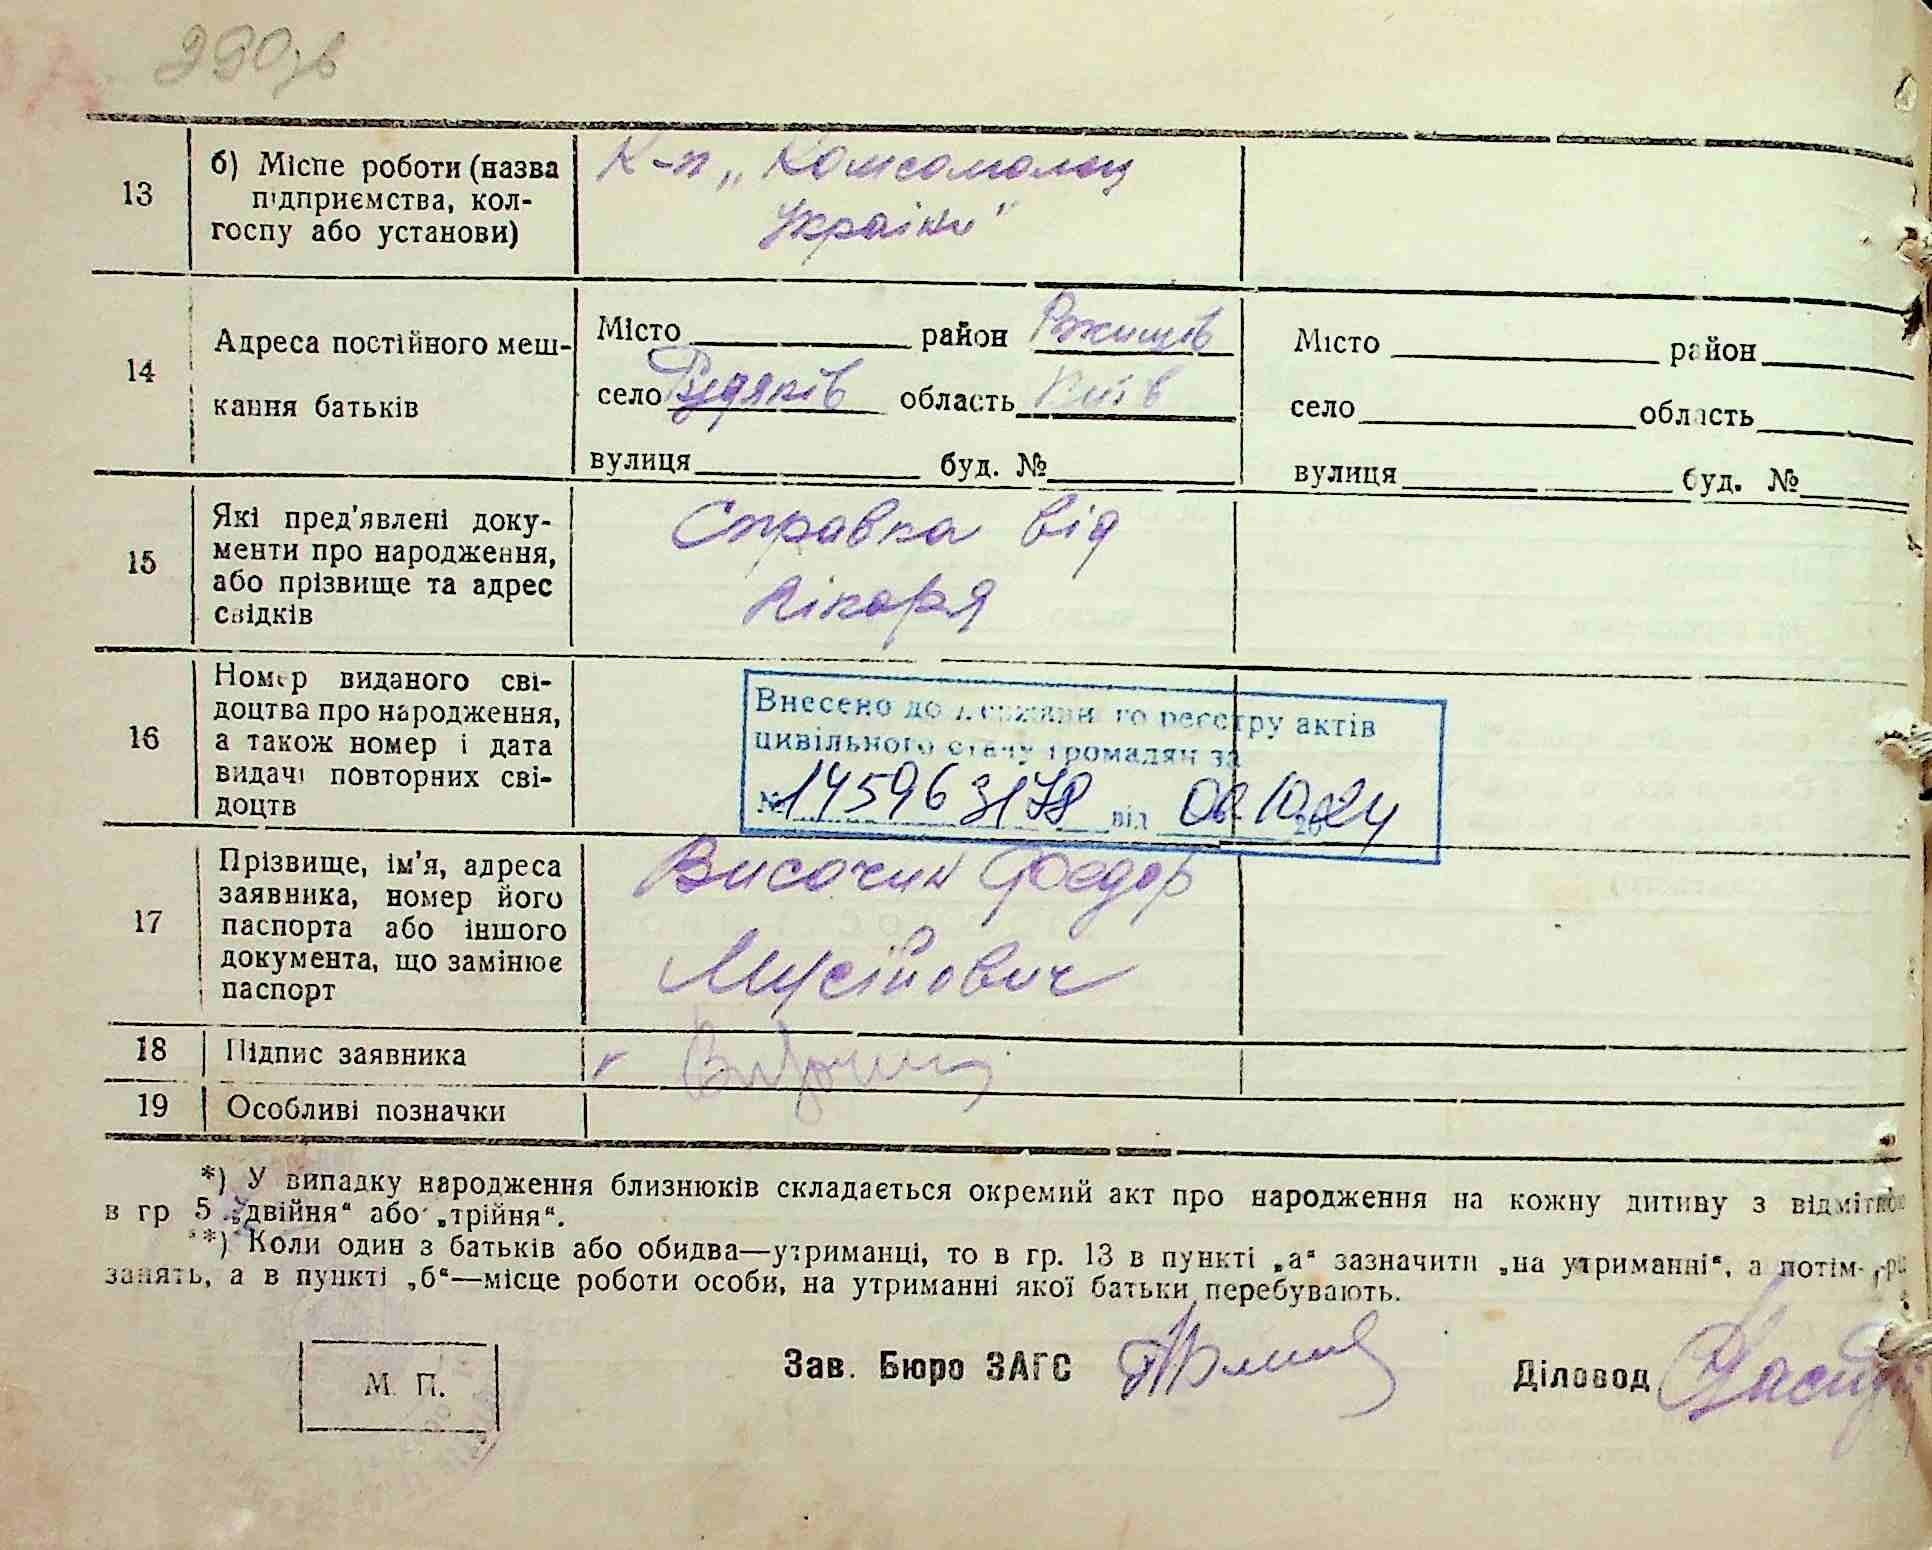 290зв
13
б) Місце роботи (назва
підприємства, кол-
госпу або установи)
К-п „Комсомолец
України"
14
Адреса постійного меш-
кання батьків
Місто район Ржищів
село Рудяків область Київ
вулиця буд. №
Місто район
село область
вулиця буд. №
15
Які пред'явлені доку-
менти про народження,
або прізвище та адрес
свідків
Справка від
лікаря
16
Номер виданого сві-
доцтва про народження,
а також номер і дата
видачі повторних сві-
доцтв
Внесено до Державного реєстру актів
цивільного стану громадян за
№ від 20
17
Прізвище, ім'я, адреса
заявника, номер його
паспорта або іншого
документа, що замінює
паспорт
Височин Федор
Мусійович
18
Підпис заявника
19
Особливі позначки
*) У випадку народження близнюків складається окремий акт про народження на кожну дитину з відміткою
в гр 5 „двійня“ або „трійня“.
**) Коли один з батьків або обидва—утриманці, то в гр. 13 в пункті „а“ зазначити „на утриманні“, а потім
занять, а в пункті „б“—місце роботи особи, на утриманні якої батьки перебувають.
М. П.
Зав. Бюро ЗАГС
Діловод